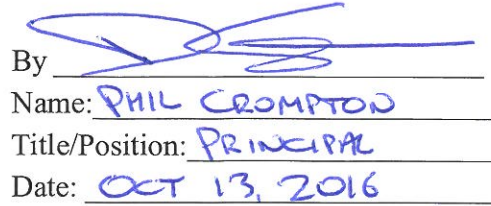 By
Name: PHIL CROMPTON
Title/Position: PRINCIPAL
Date: OCT 13, 2016